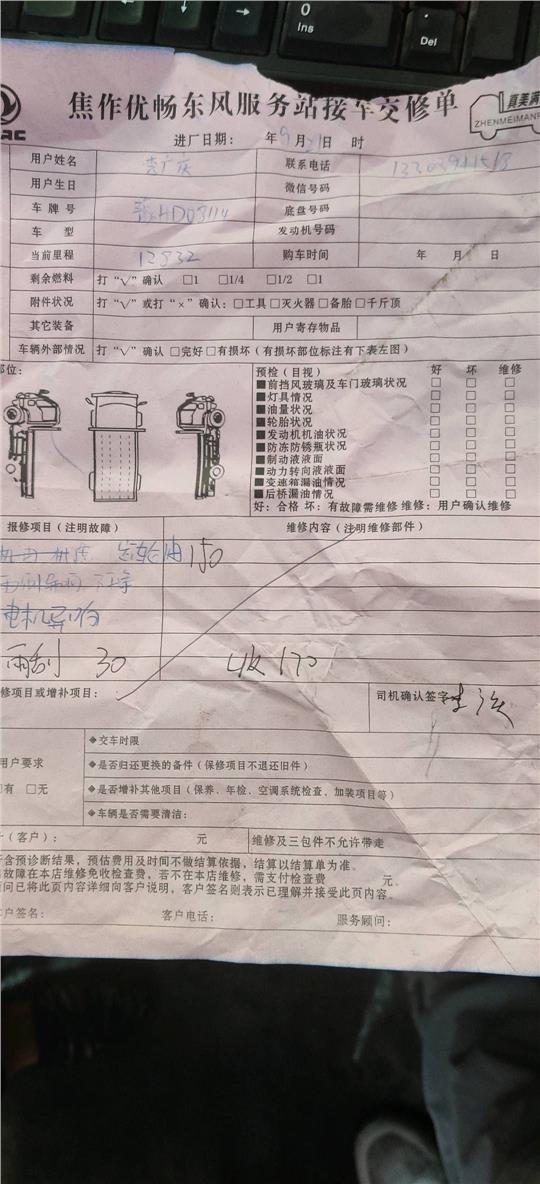 0
Ins
Del
焦作优畅东风服务站接车交修单
真美满
ZHENMEIMAN
AC
进厂日期: 年9月21日 时
用户姓名 联系电话
用户生日 微信号码
车牌号 HD03114 底盘号码
车型 发动机号码
当前里程 12832 购车时间 年 月 日
剩余燃料 打“√”确认 □1 □1/4 □1/2 □1
附件状况 打“√”或打“×”确认:□工具□灭火器□备胎□千斤顶
其它装备 用户寄存物品
车辆外部情况 打“√”确认□完好□有损坏(有损坏部位标注有下表左图)
部位: 预检(目视) 好 坏 维修
■前挡风玻璃及车门玻璃状况 □ □ □
■灯具情况 □ □ □
■油量状况 □ □ □
■轮胎状况 □ □ □
■发动机机油状况 □ □ □
■防冻防锈瓶状况 □ □ □
■制动液液面 □ □ □
■动力转向液液面 □ □ □
■变速箱漏油情况 □ □ □
■后桥漏油情况 □ □ □
好:合格 坏:有故障需维修 维修:用户确认维修
报修项目(注明故障) 维修内容(注明维修部件)
齿轮油 150
电机异响
雨刮 30 收170
修项目或增补项目: 司机确认签字
用户要求
□有 □无
◆交车时限
◆是否归还更换的备件(保修项目不退还旧件)
◆是否增补其他项目(保养、年检、空调系统检查、加装项目等)
◆车辆是否需要清洁:
(客户): 元 维修及三包件不允许带走
含预诊断结果,预估费用及时间不做结算依据,结算以结算单为准。
故障在本店维修免收检查费,若不在本店维修,需支付检查费 元。
问已将此页内容详细向客户说明,客户签名则表示已理解并接受此页内容。
客户签名: 客户电话: 服务顾问: